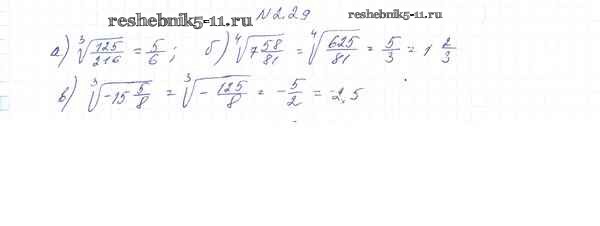 reshebnik5-11.ru N 2.29 reshebnik5-11.ru
а) ∛(125/216) = 5/6 ; б) ∜(7 58/81) = ∜(625/81) = 5/3 = 1 2/3
в) ∛(-15 5/8) = ∛(- 125/8) = - 5/2 = -2.5